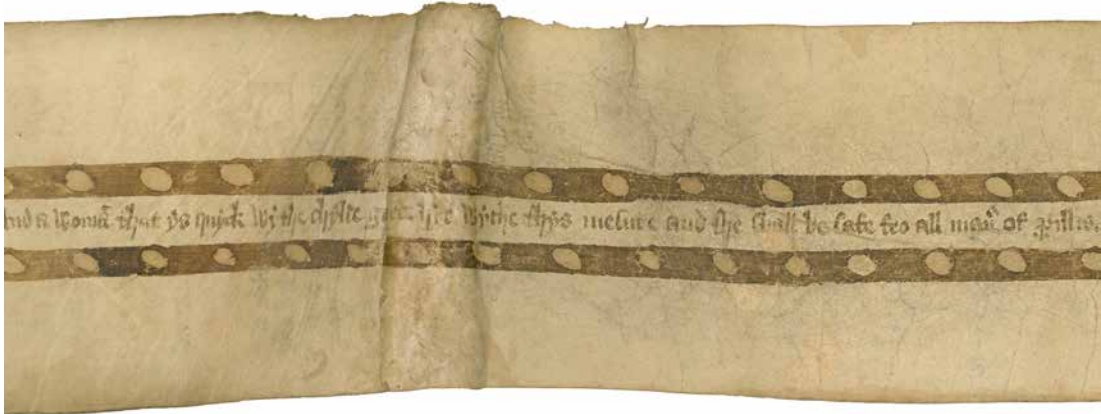 And a womā that ys quyck wythe chylde gyrde hyr wythe thys mesure and she shall be safe fro all man̄ of perillis.